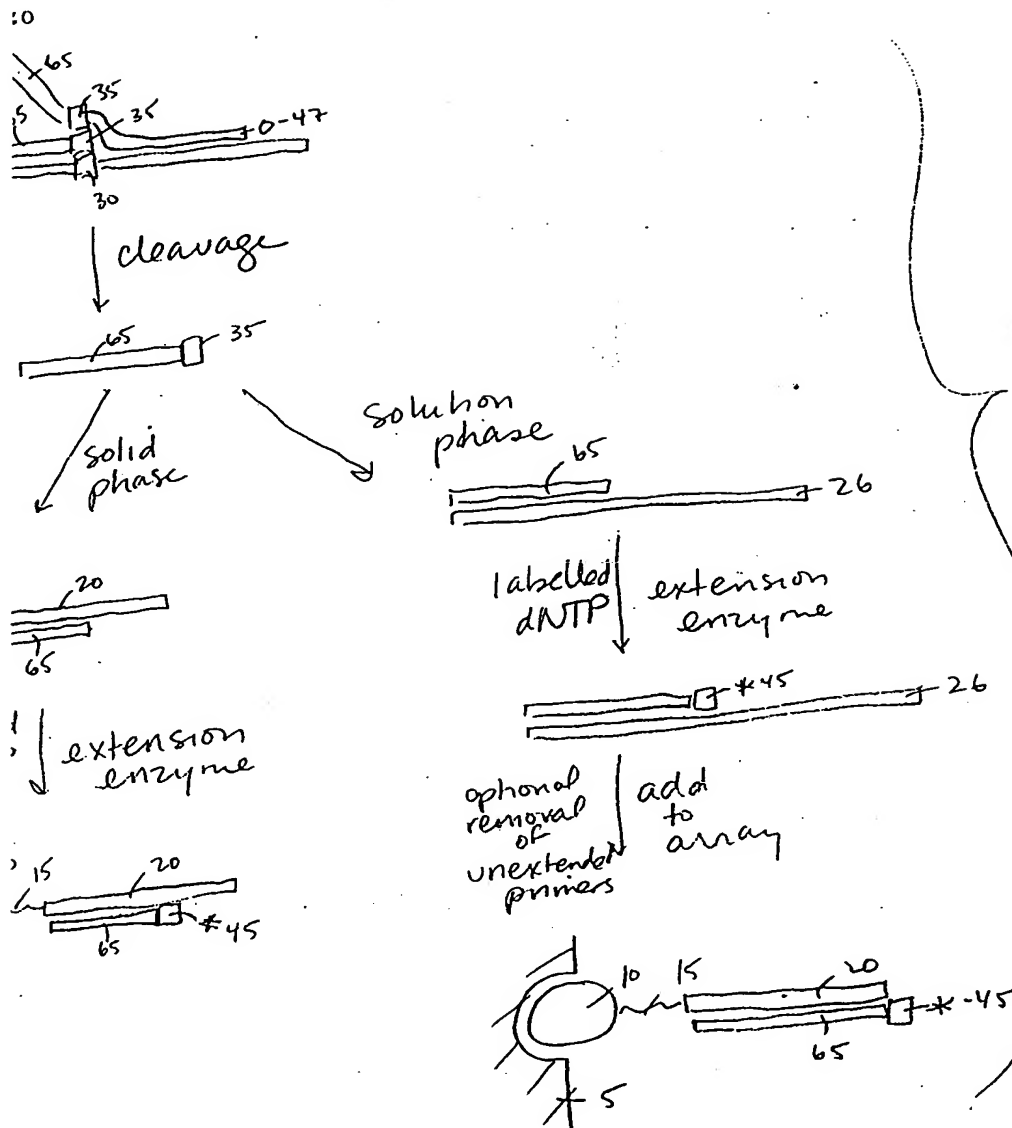 :0
65
35
35
5
0-47
30
cleavage
65
35
solid
phase
solution
phase
65
26
20
65
labelled
dNTP
extension
enzyme
*45
26
extension
enzyme
optional
removal
of
unextended
primers
add
to
array
15
20
65
*45
10
15
20
*-45
65
5